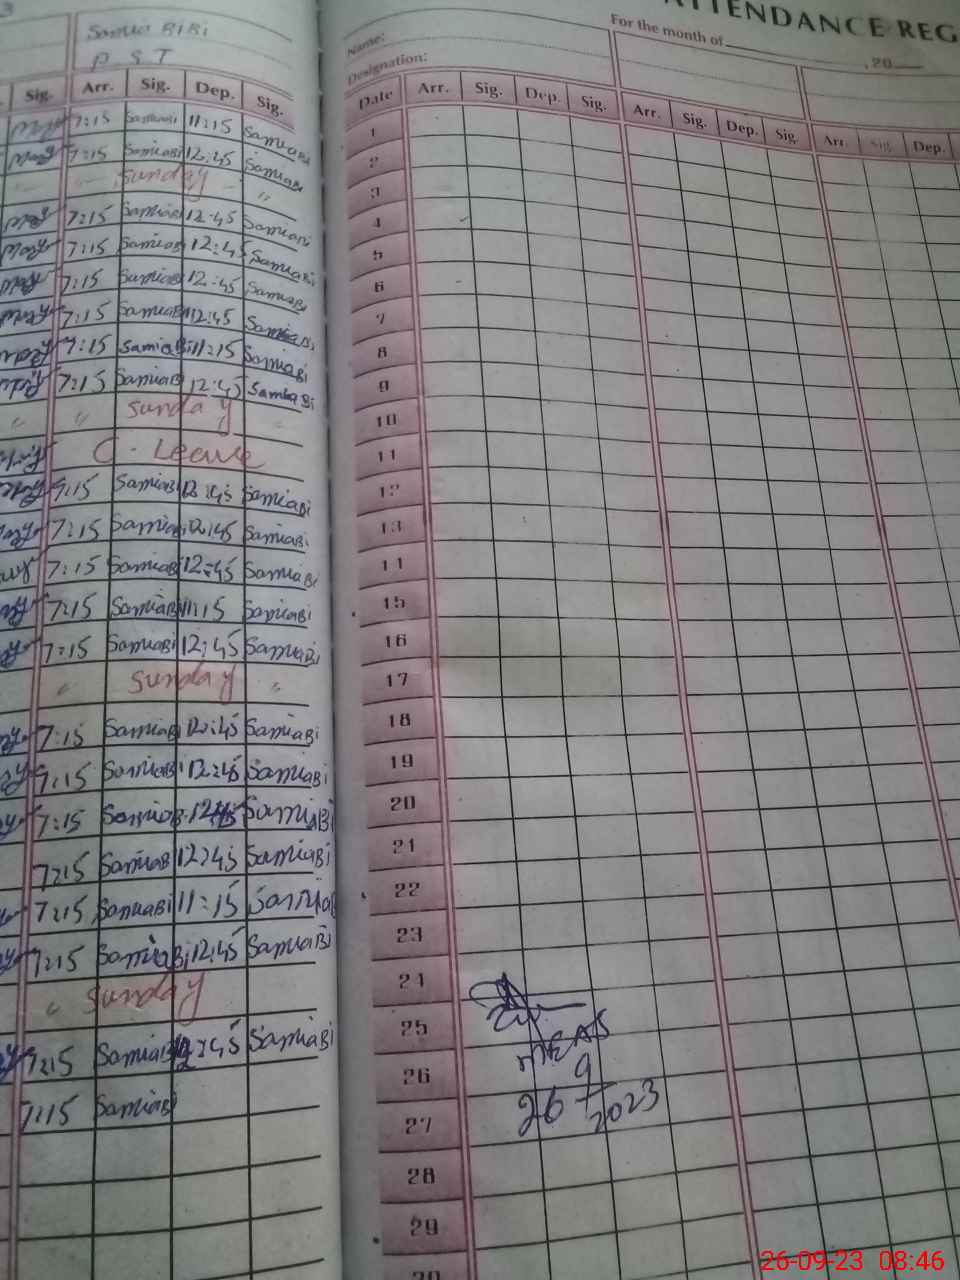 3
Samia BiBi
P S T
Sig. Arr. Sig. Dep. Sig.
7:15 SamiaBi 11:15 SamiaBi
7:15 SamiaBi 12:45 SamiaBi
" " Sunday "
7:15 SamiaBi 12:45 SamiaBi
7:15 SamiaBi 12:45 SamiaBi
7:15 SamiaBi 12:45 SamiaBi
7:15 SamiaBi 12:45 SamiaBi
7:15 SamiaBi 11:15 SamiaBi
7:15 SamiaBi 12:45 SamiaBi
" " Sunday
C - Leave
7:15 SamiaBi 12:45 SamiaBi
7:15 SamiaBi 12:45 SamiaBi
7:15 SamiaBi 12:45 SamiaBi
7:15 SamiaBi 11:15 SamiaBi
7:15 SamiaBi 12:45 SamiaBi
" Sunday "
7:15 SamiaBi 12:45 SamiaBi
7:15 SamiaBi 12:45 SamiaBi
7:15 SamiaBi 12:45 SamiaBi
7:15 SamiaBi 12:45 SamiaBi
7:15 SamiaBi 11:15 SamiaBi
7:15 SamiaBi 12:45 SamiaBi
" Sunday
7:15 SamiaBi 12:45 SamiaBi
7:15 SamiaBi
ATTENDANCE REG
For the month of , 20
Name:
Designation:
Date Arr. Sig. Dep. Sig. Arr. Sig. Dep. Sig. Arr. Sig. Dep.
1
2
3
4
5
6
7
8
9
10
11
12
13
14
15
16
17
18
19
20
21
22
23
24
25
MEAS
26
9
26
2023
27
28
29
30
26-09-23 08:46